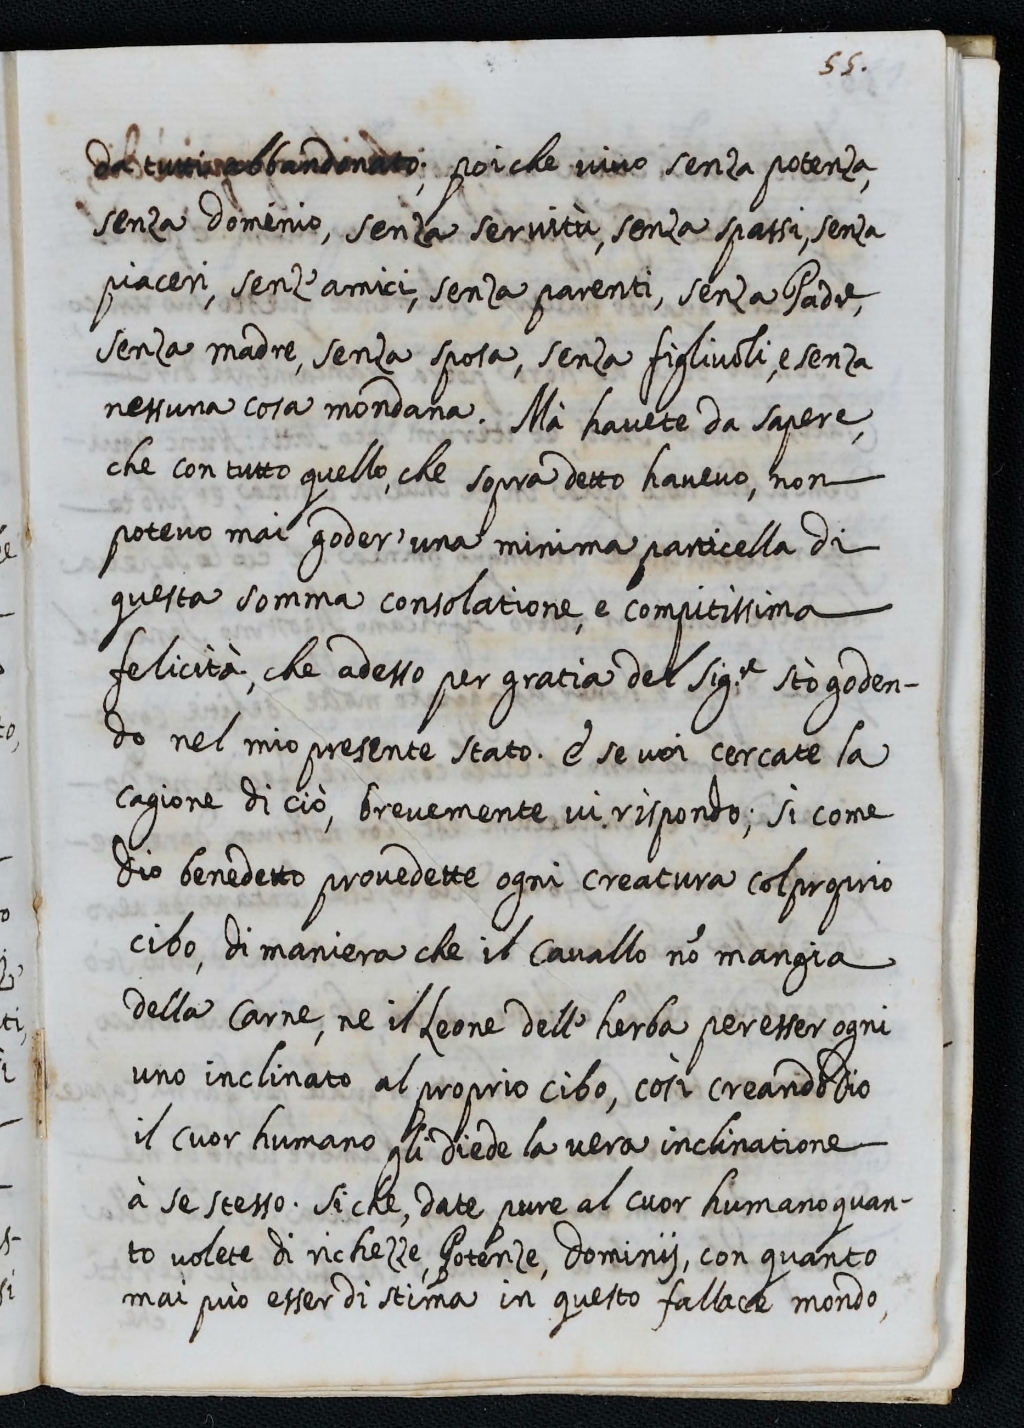 55.
da tutti abbandonato; poiche uiuo senza potenza,
senza domenio, senza seruitù, senza spassi, senza
piaceri, senz'amici, senza parenti, senza Padre,
senza madre, senza sposa, senza figliuoli, e senza
nessuna cosa mondana. Mà hauete da sapere,
che con tutto quello, che sopra detto haueuo, non
poteuo mai goder' una minima particella di
questa somma consolatione, e compitissima
felicità, che adesso per gratia del Sig.re stò goden-
do nel mio presente stato. è se uoi cercate la
cagione di ciò, breuemente ui rispondo; si come
Dio benedetto prouedette ogni creatura col proprio
cibo, di maniera che il Cauallo nõ mangia
della Carne, ne il Leone dell' herba per esser ogni
uno inclinato al proprio cibo, così creando Dio
il cuor humano gli diede la uera inclinatione
à se stesso. Si che, date pure al cuor humano quan-
to uolete di richezze, Potenze, dominij, con quanto
mai può esser di stima in questo fallace mondo,